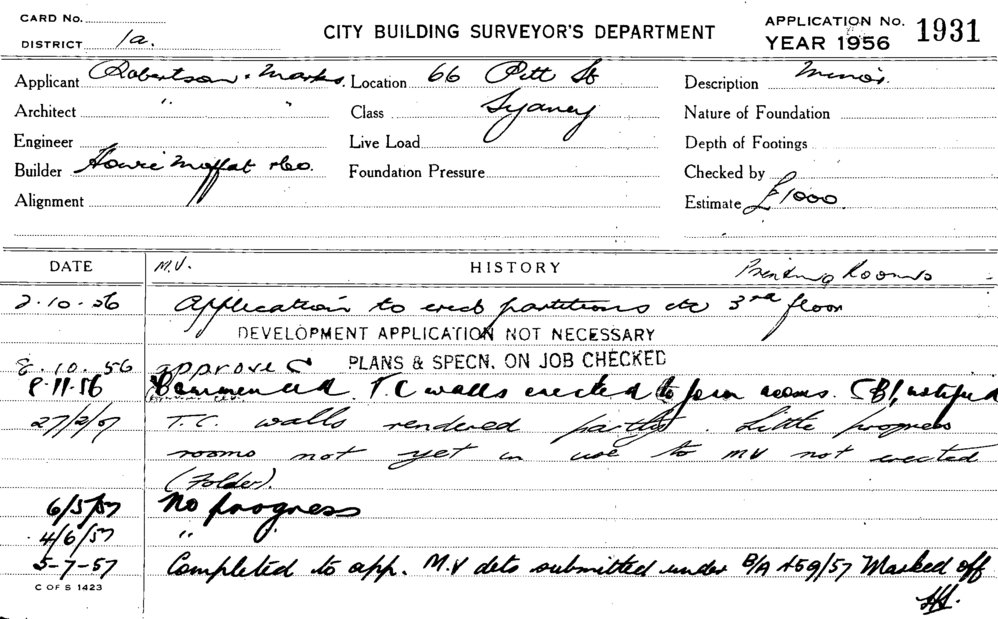 CARD No.
DISTRICT 1a.
CITY BUILDING SURVEYOR'S DEPARTMENT
APPLICATION No. 1931
YEAR 1956
Applicant Robertson & Marks. Location 66 Pitt St Description Minor
Architect " " Class Sydney Nature of Foundation
Engineer Live Load Depth of Footings
Builder Howie Moffat & Co. Foundation Pressure Checked by
Alignment Estimate £1000.
DATE M.V. HISTORY Printing Rooms
2.10.56 Application to erect partitions etc 3rd floor
DEVELOPMENT APPLICATION NOT NECESSARY
PLANS & SPECN. ON JOB CHECKED
8.10.56 approved
8.11.56 Commenced. T.C walls erected to form rooms. CBI, notified
27/2/57 T.C. walls rendered partly. Little progress
rooms not yet in use to MV not erected
(Folder).
6/5/57 No progress
4/6/57 "
5-7-57 Completed to app. M.V dets submitted under B/A 459/57 Marked off
C OF S 1423